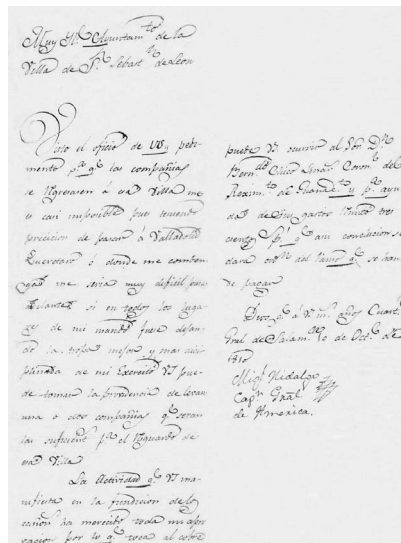 Muy Ylᵉ Ayuntamᵗᵒ de la
Villa de Sⁿ Sebastⁿ de Leon
Visto el oficio de VS, y pedi-
mento pᵃ qᵉ las compañias
se regresaren á esa Villa me
es casi imposible pues teniendo
precicion de pasar á Valladolid
Queretaro ó donde me comben-
ga me seria muy dificil pues
adelante si en todos los luga-
res de mi mando fuese dejan-
do la tropa mejor y mas dici-
plinada de mi Exercito VS pue-
de tomar la providencia de levan
una o dos compañias qᵉ seran
las suficientˢ pᵃ el Resguardo de
esa Villa
La Actividad qᵉ VS ma-
nifiesta en la fundicion de los
cañon ha merecido toda mi apro
vacion por lo qᵉ toca al cobre
puede VS ocurrir al Sor Dⁿ
Fernᵈᵒ Coronˡ del
Reximᵗᵒ de Guanaxᵗᵒ y pᵃ ayu
da de sus gastos tres
cientos psˢ qᵉ conclucion se
dara ordⁿ del qᵉ se han
de pagar
Dios gᵉ á VS mˢ añosˢ Cuartˡ
Gral de Salamᶜᵃ de Octᵉ de
1810
Miglˡ Hidalgo
Capⁿ Gral
de America.